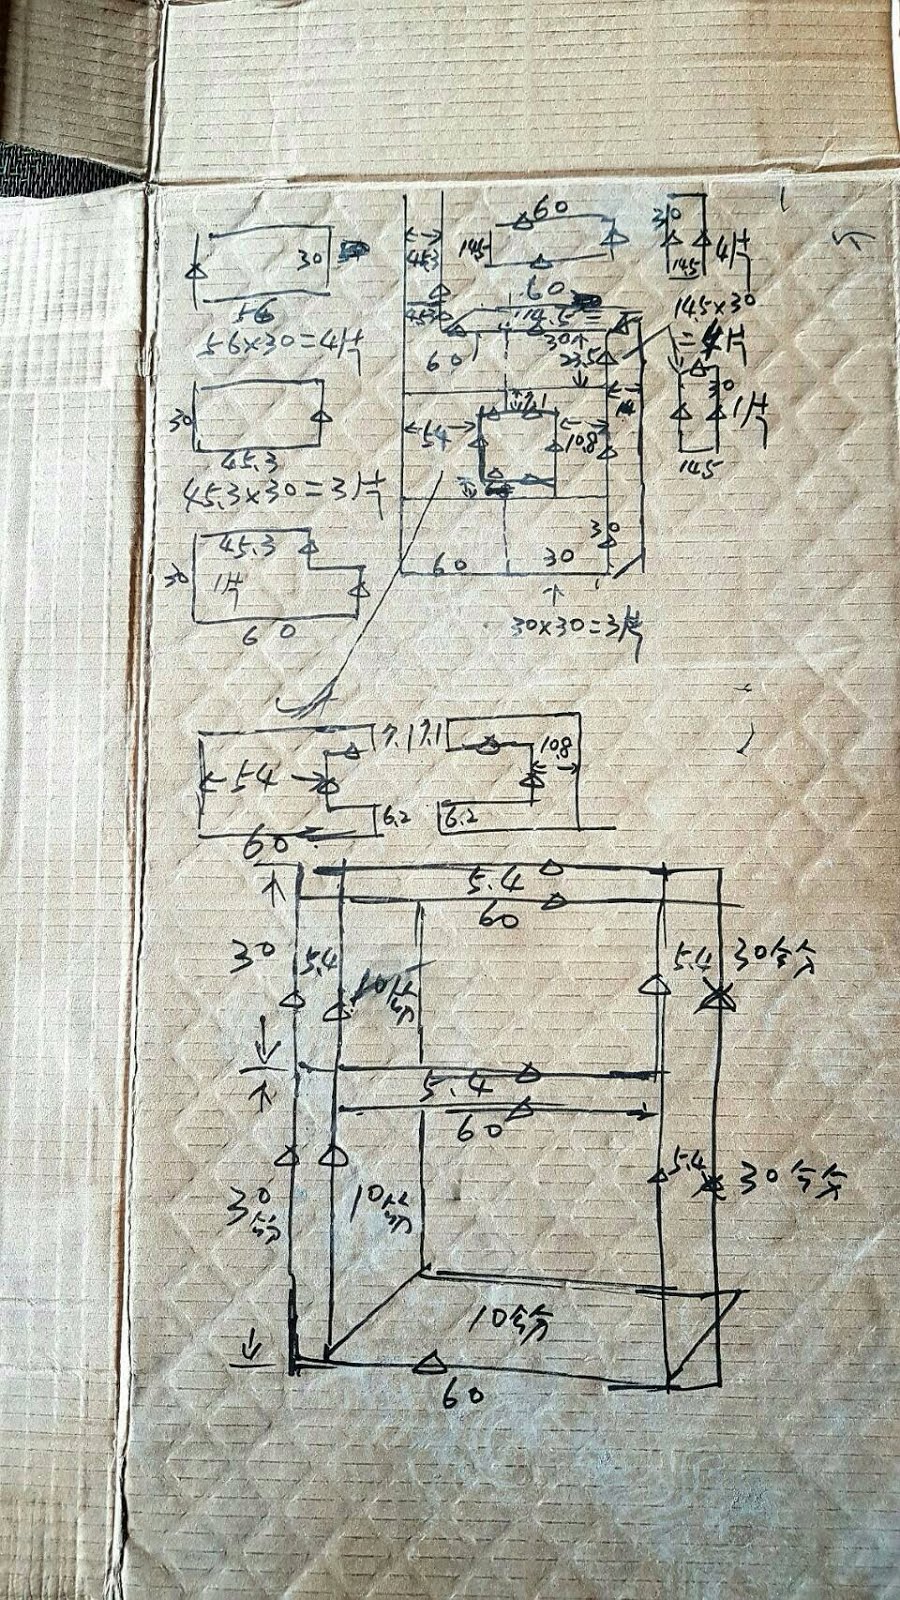 60
14.5
30
14.5
4片
30
56
56×30=4片
45.3
45.3
60
14.5
14.5×30
=4片
60
30
23.5
14
30
45.3
45.3×30=3片
54
7.1
10.8
30
1片
14.5
45.3
30
1片
60
30
60
30
30×30=3片
7.1
7.1
54
10.8
6.2
6.2
60
5.4
60
30
5.4
10公分
5.4
30公分
5.4
60
30公分
10公分
5.4
30公分
10公分
60